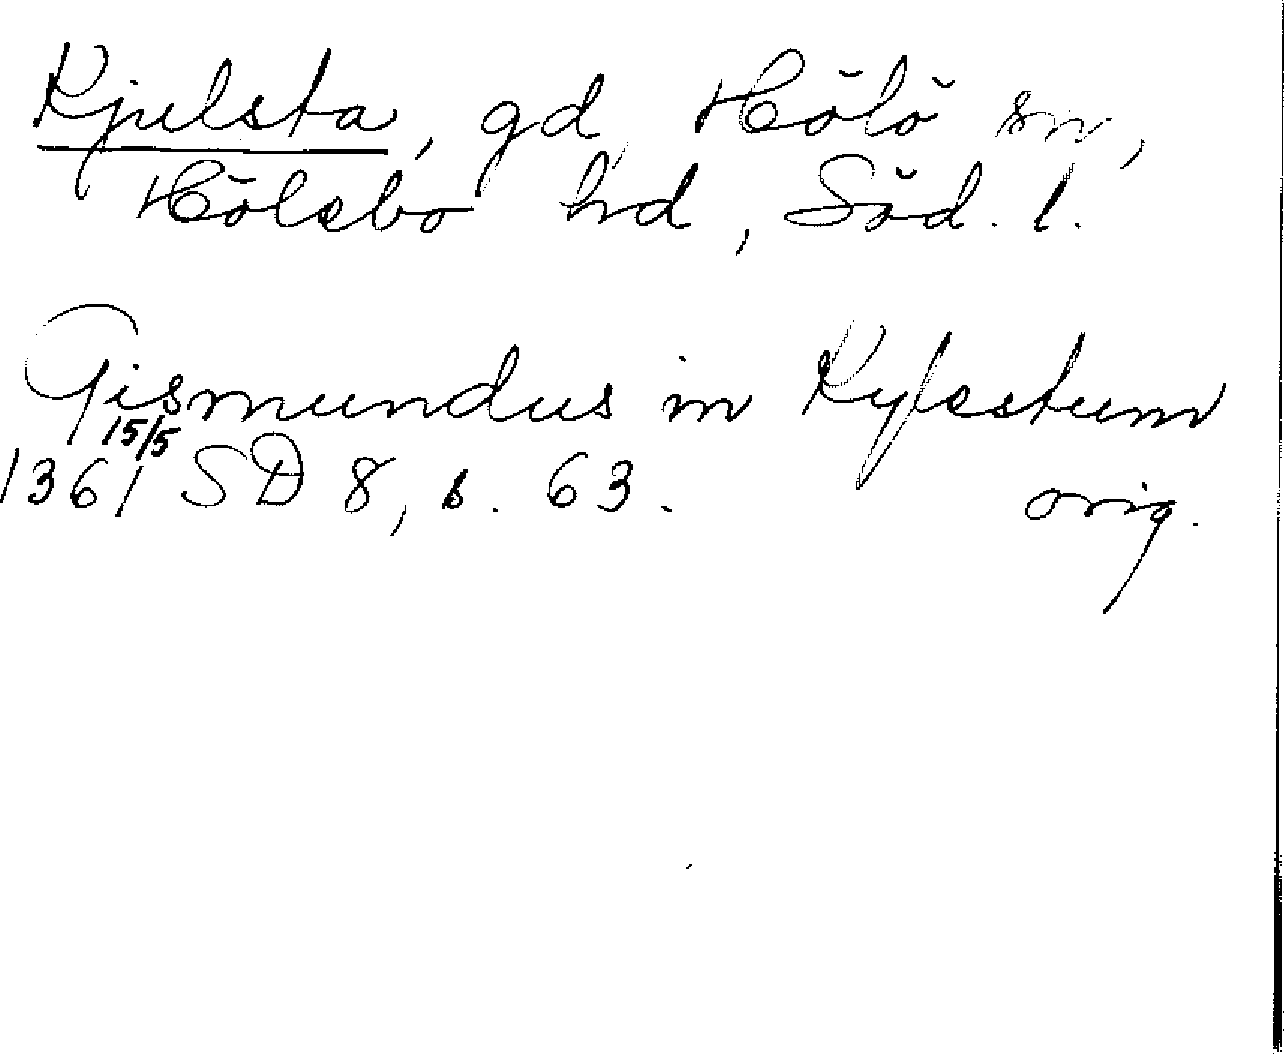 Kjulsta, gd, Hölö sn,
Hölebo hd, Söd. l.
Gismundus in Kylestum
15/5
1361 SD 8, s. 63. orig.